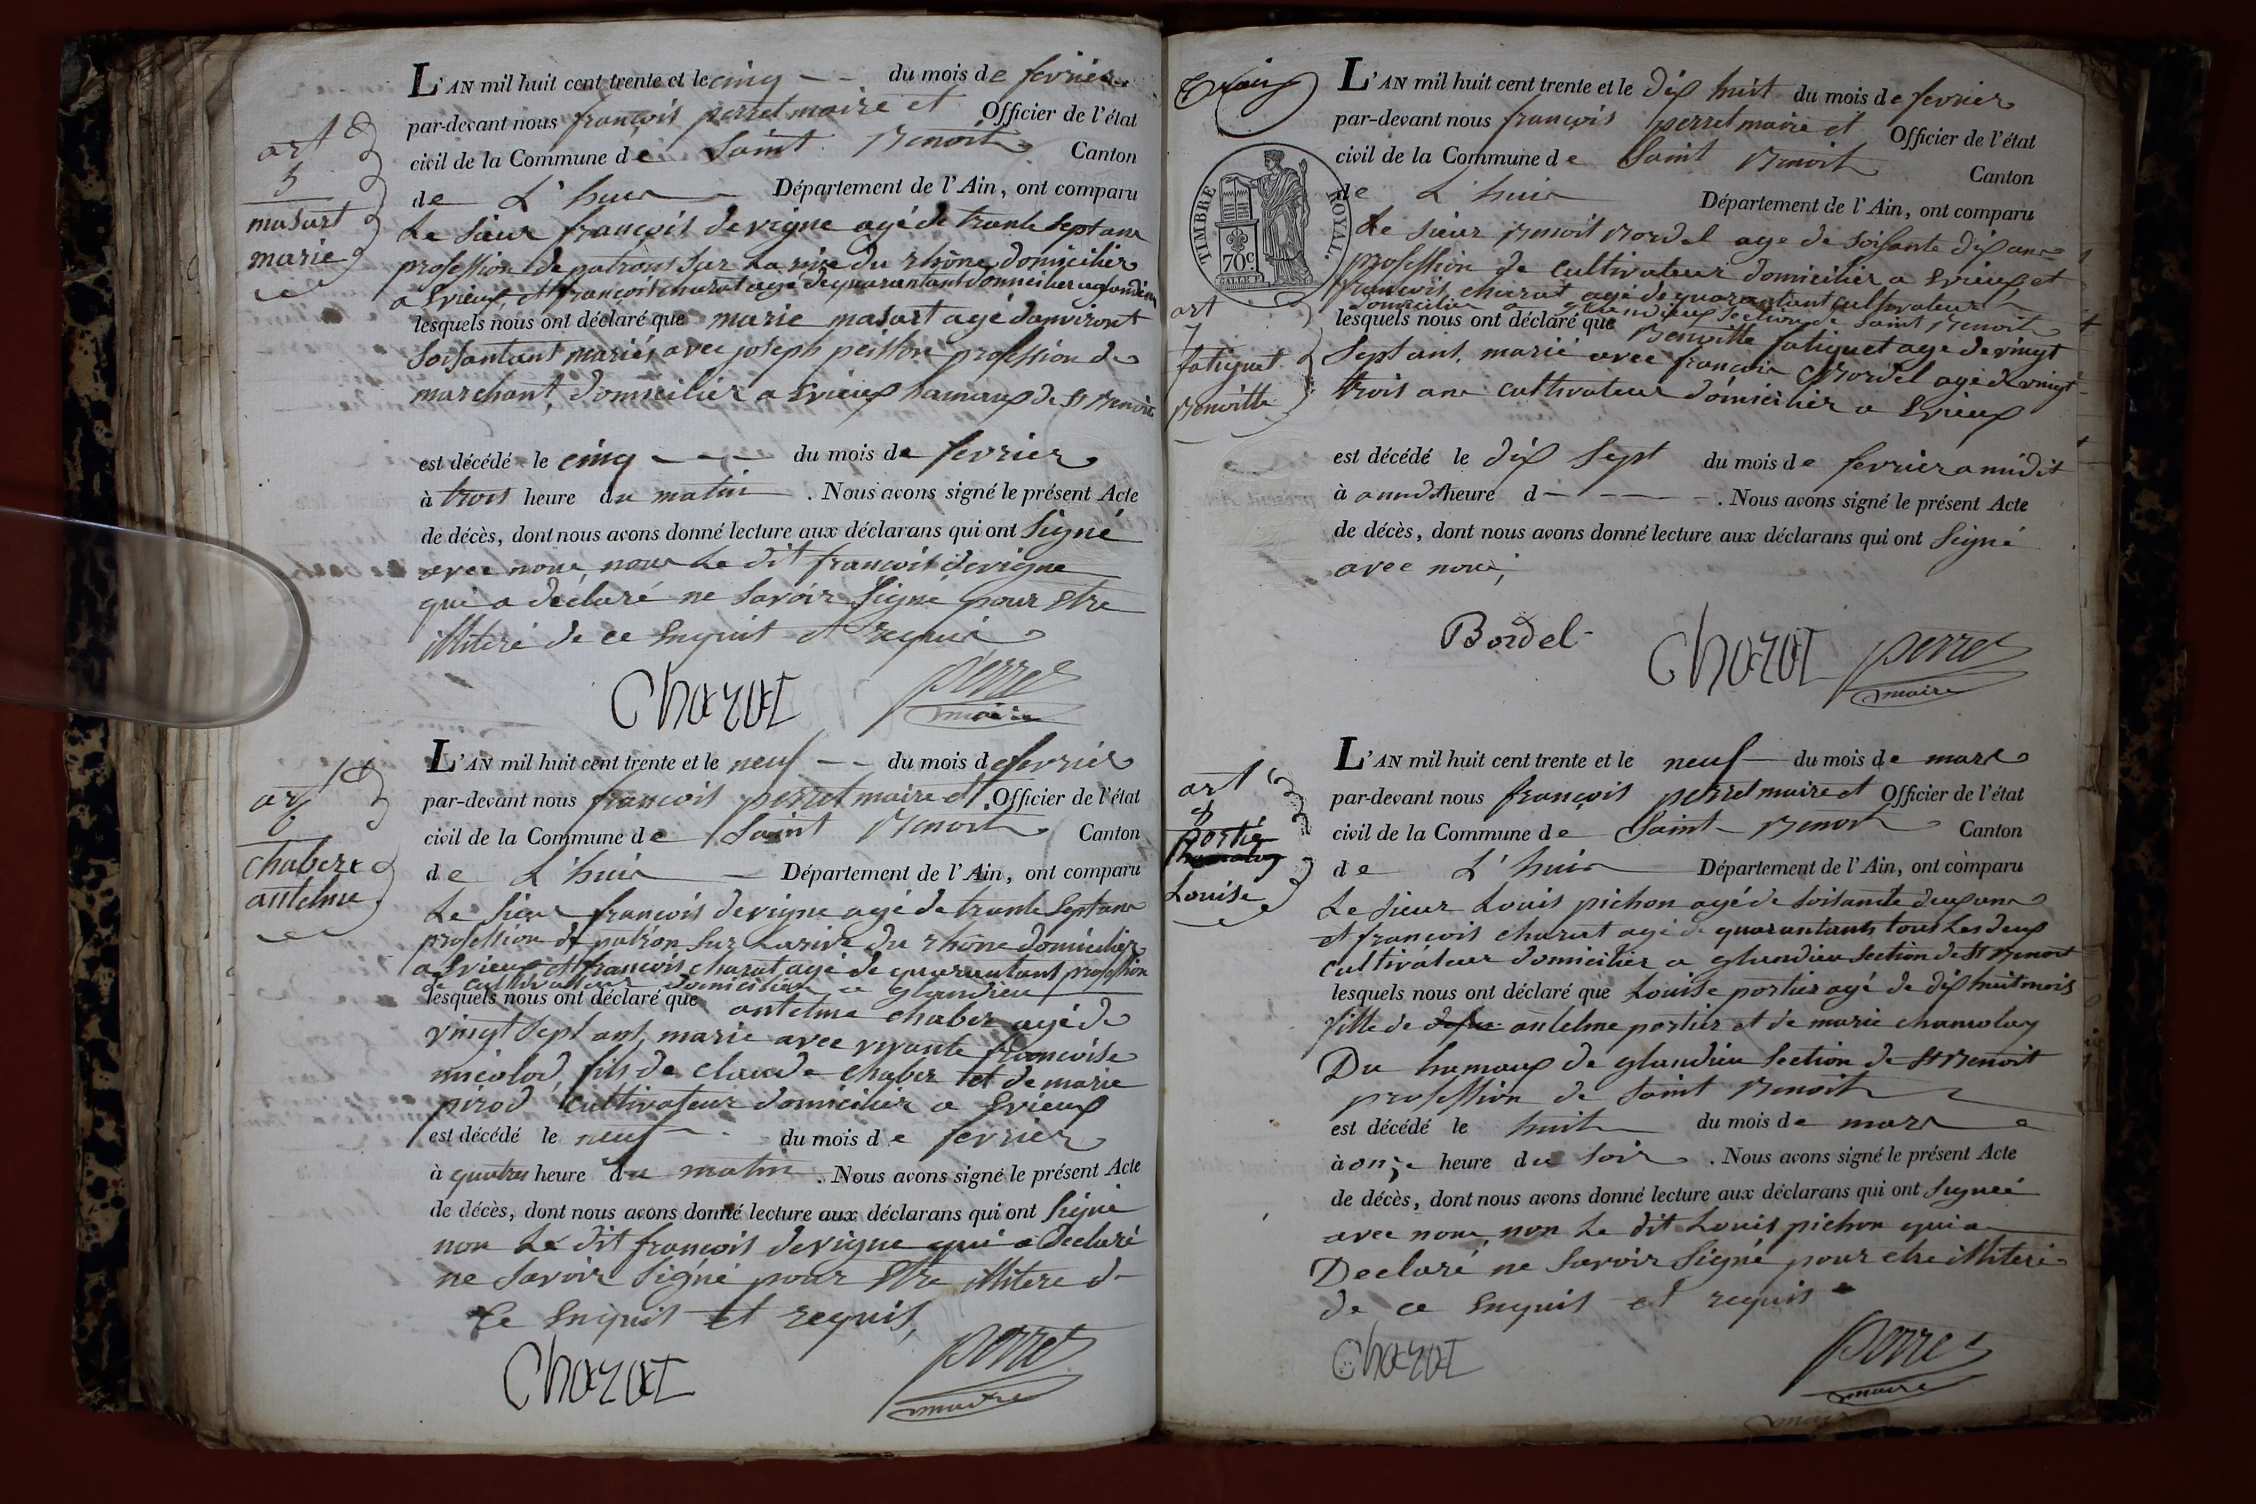 art
5
masart
marie
L'AN mil huit cent trente et le cinq du mois de fevrier
par-devant nous françois perret maire et Officier de l'état
civil de la Commune de Saint Benoit Canton
de L'huis Département de l'Ain, ont comparu
Le sieur françois devigne agé de trante sept ans
profession de patron sur la rive du rhône domicilier
a Evieux et françois charat agé de quarantant domicilier a glandieu
lesquels nous ont déclaré que marie masart agé d'anviront
soisantant mariés avec joseph profession de
marchant, domicilier a Evieux hamaux de St Benoit
est décédé le cinq du mois de fevrier
à trois heure du matin. Nous avons signé le présent Acte
de décès, dont nous avons donné lecture aux déclarans qui ont Signé
avec nous, non Le dit francois devigne
qui a déclaré ne savoir Signé pour Etre
illiteré de ce Enquit et requis
Charat perret
maire
art
6
chaber
antelme
L'AN mil huit cent trente et le neuf du mois de fevrier
par-devant nous francois perret maire et Officier de l'état
civil de la Commune de Saint Benoit Canton
de L'huis Département de l'Ain, ont comparu
Le Sieur françois devigne agé de trante Sept ans
profession de patron Sur La rive du rhône domicilier
a Evieux et françois charat agé de quarantant profession
de cultivateur domicilier a glandieu
lesquels nous ont déclaré que antelme chaber agé de
vingt Sept ant, marie avec vivante francoise
micolod, fils de claude chaber et de marie
pirod cultivateur domicilier a Evieux
est décédé le neuf du mois de fevrier
à quatres heure du matin. Nous avons signé le présent Acte
de décès, dont nous avons donné lecture aux déclarans qui ont Signé
non Le dit francois devigne qui a Declaré
ne Savoir Signé pour Etre illiteré d
Ce Enquis et requis,
Charat perret
maire
TIMBRE ROYAL
70c
art
7
fatiguet
Benoitte
L'AN mil huit cent trente et le Dix huit du mois de fevrier
par-devant nous françois perret maire et Officier de l'état
civil de la Commune de Saint Benoit Canton
de L'huis Département de l'Ain, ont comparu
Le sieur Benoit Bordel age de Soisante dix ans
profession de cultivateur domicilier a Evieux et
francois charat agé de quarantant cultivateur
domicilier a glandieux section de Saint Benoit
lesquels nous ont déclaré que Benoitte fatiguet age de vingt
Sept ant, marié avec francois Bordel agé de vingt
trois ans cultivateur domicilier a Evieux
est décédé le dix Sept du mois de fevrier a midit
à a midit heure d. Nous avons signé le présent Acte
de décès, dont nous avons donné lecture aux déclarans qui ont Signé
avec nous,
Bordel Charat perret
maire
art
8
portié
Louise
L'AN mil huit cent trente et le neuf du mois de mars
par-devant nous françois perret maire et Officier de l'état
civil de la Commune de Saint Benoit Canton
de L'huis Département de l'Ain, ont comparu
Le sieur Louis pichon agé de Soisante deux ans
et francois charat agé de quarantants tous Les deux
cultivateur domicilier a glandieu Section de St Benoit
lesquels nous ont déclaré que Louise portier agé de dix huit mois
fille de antelme portier et de marie chamolay
Du hamaux de glandieu Section de St Benoit
profession de Saint Benoit
est décédé le huit du mois de mars
à onze heure du soir. Nous avons signé le présent Acte
de décès, dont nous avons donné lecture aux déclarans qui ont Signeé
avec nous, non Le dit Louis pichon qui a
Declaré ne Savoir Signé pour etre illiteré
de ce Enquis et requis
Charat perret
maire